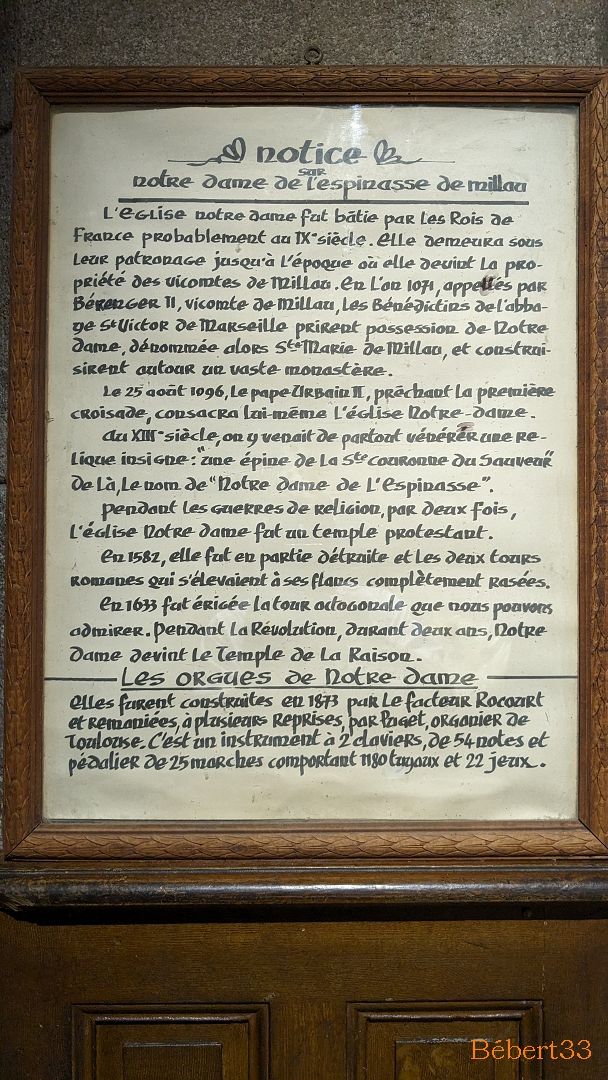 notice
sur
notre dame de l'espinasse de millau
L'EGLISE notre dame fut bâtie par les Rois de
France probablement au IXe siècle. Elle demeura sous
leur patronage jusqu'à l'époque où elle devint la pro-
priété des vicomtes de Millau. En l'an 1071, appellés par
Bérenger II, vicomte de Millau, les Bénédictins de l'abba-
ye St Victor de Marseille prirent possession de Notre
Dame, dénommée alors Ste Marie de Millau, et construi-
sirent autour un vaste monastère.
Le 25 août 1096, le pape Urbain II, prêchant la première
croisade, consacra lui-même l'église Notre-dame.
Au XIIIe siècle, on y venait de partout vénérer une re-
lique insigne: "une épine de la Ste couronne du Sauveur"
De là, le nom de "Notre dame de l'Espinasse".
Pendant les guerres de religion, par deux fois,
l'église Notre dame fut un temple protestant.
En 1582, elle fut en partie détruite et les deux tours
romanes qui s'élevaient à ses flancs complètement rasées.
En 1633 fut érigée la tour octogonale que nous pouvons
admirer. Pendant la Révolution, durant deux ans, Notre
Dame devint le Temple de la Raison.
Les orgues de Notre dame
Elles furent construites en 1873 par le facteur Rocourt
et remaniées, à plusieurs reprises, par Puget, organier de
Toulouse. C'est un instrument à 2 claviers, de 54 notes et
pédalier de 25 marches comportant 1180 tuyaux et 22 jeux.
Bébert33